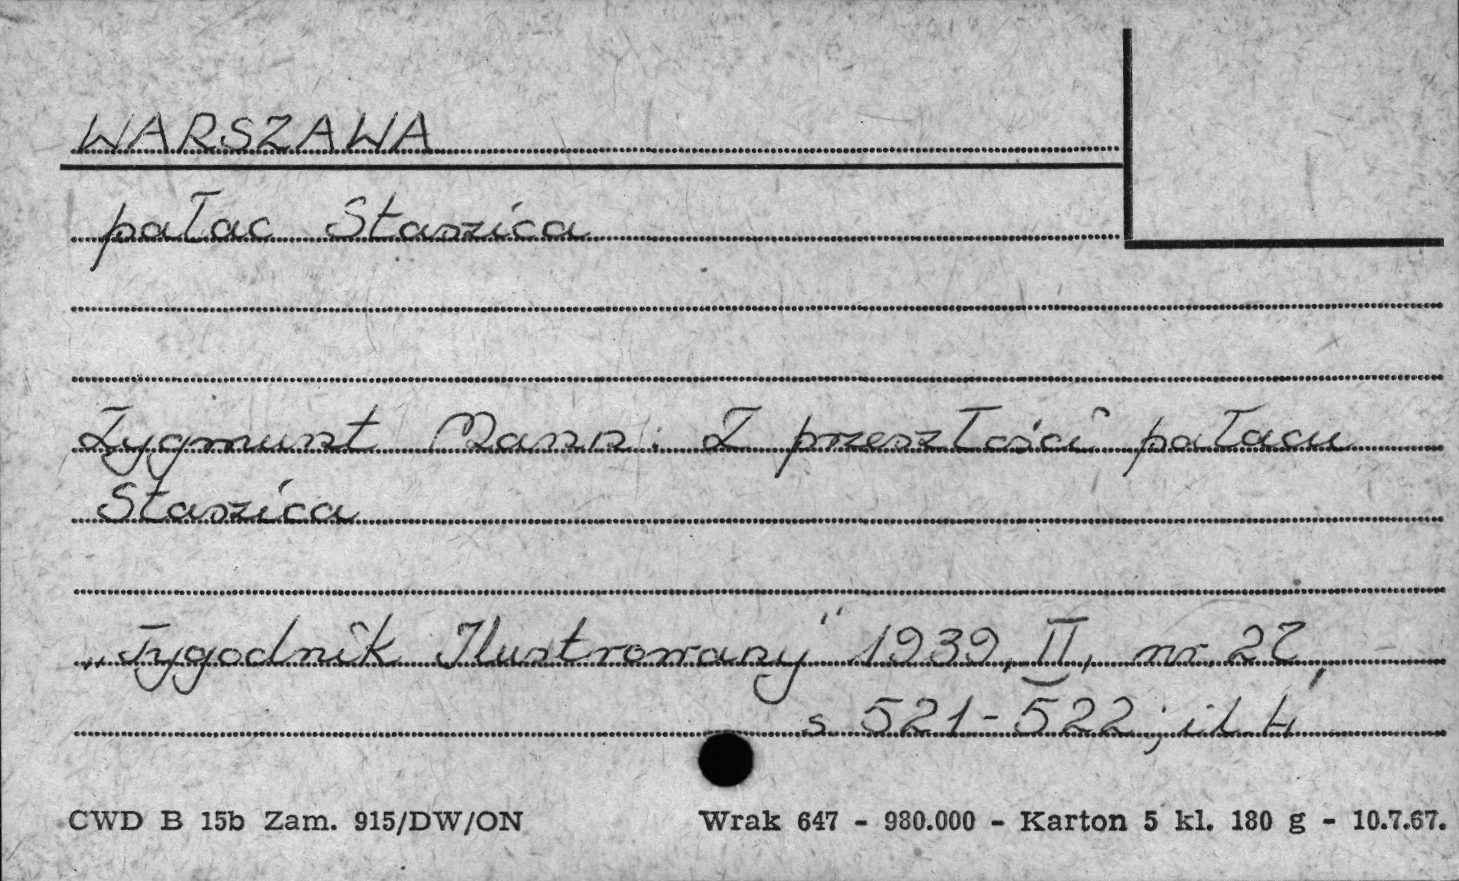 WARSZAWA
pałac Staszica
Zygmunt Mann: Z przeszłości pałacu
Staszica
„Tygodnik Ilustrowany" 1939, II, nr. 27,
s. 521-522; il. 4
CWD B 15b Zam. 915/DW/ON Wrak 647 - 980.000 - Karton 5 kl. 180 g - 10.7.67.